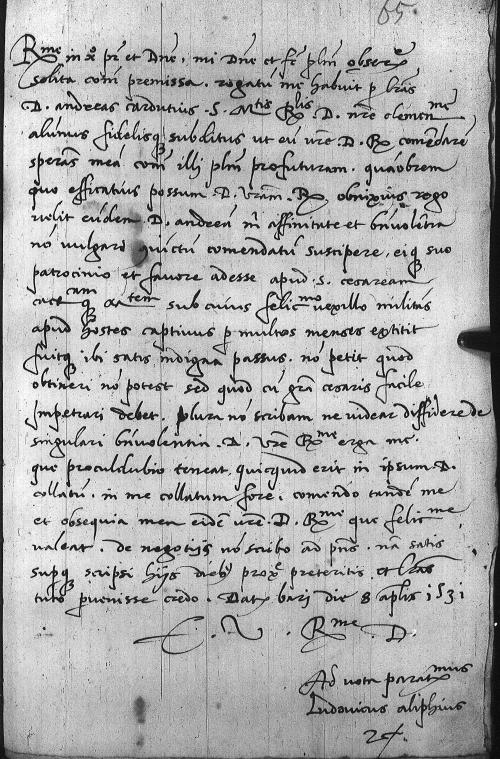 65.
R^me in xo pr et Dne, mi Dne et fr plm obser^e
solita com premissa. rogatu me habuit p lras
D. andreas carducius. S. M^tis R^lis D. nre clemen^me
alumnus fidelisq subditus ut eu vre. D. R^x comendare
speras mea com illj plm profuturam. quaobrem
quo efficatius possum. D. vram. R^x obnixius rogo
velit eudem D. andrea m affinitate et bnivoletia
no vulgari iunctu comendatu suscipere, eiq suo
patrocinio et favore adesse apud. S. cesaream
cath^cam q m^tem sub cuius felic^mo vexillo militas
apud hostes captivus p multos menses extitit
fuitq ibi satis indigna passus. no petit quod
obtineri no potest sed quod cu gra cesaris facile
impetrari debet. plura no scribam ne videar diffidere de
singulari bnivolentia. D. vre R^me erga me.
que proculdubio teneat, quicquid erit in ipsum. D.
collatu. in me collatum fore. comendo tande me
et obsequia mea eide vre. D. R^me que felic^me
valeat. de negotijs no scribo ad pns. na satis
supq scripsi hijs dieb prox^e preteritis et lras
tuto pvenisse credo. Dat^x barj die 8 aplis 1531
E. V. R^me D.
Ad vota parat^mus
Ludovicus aliphius